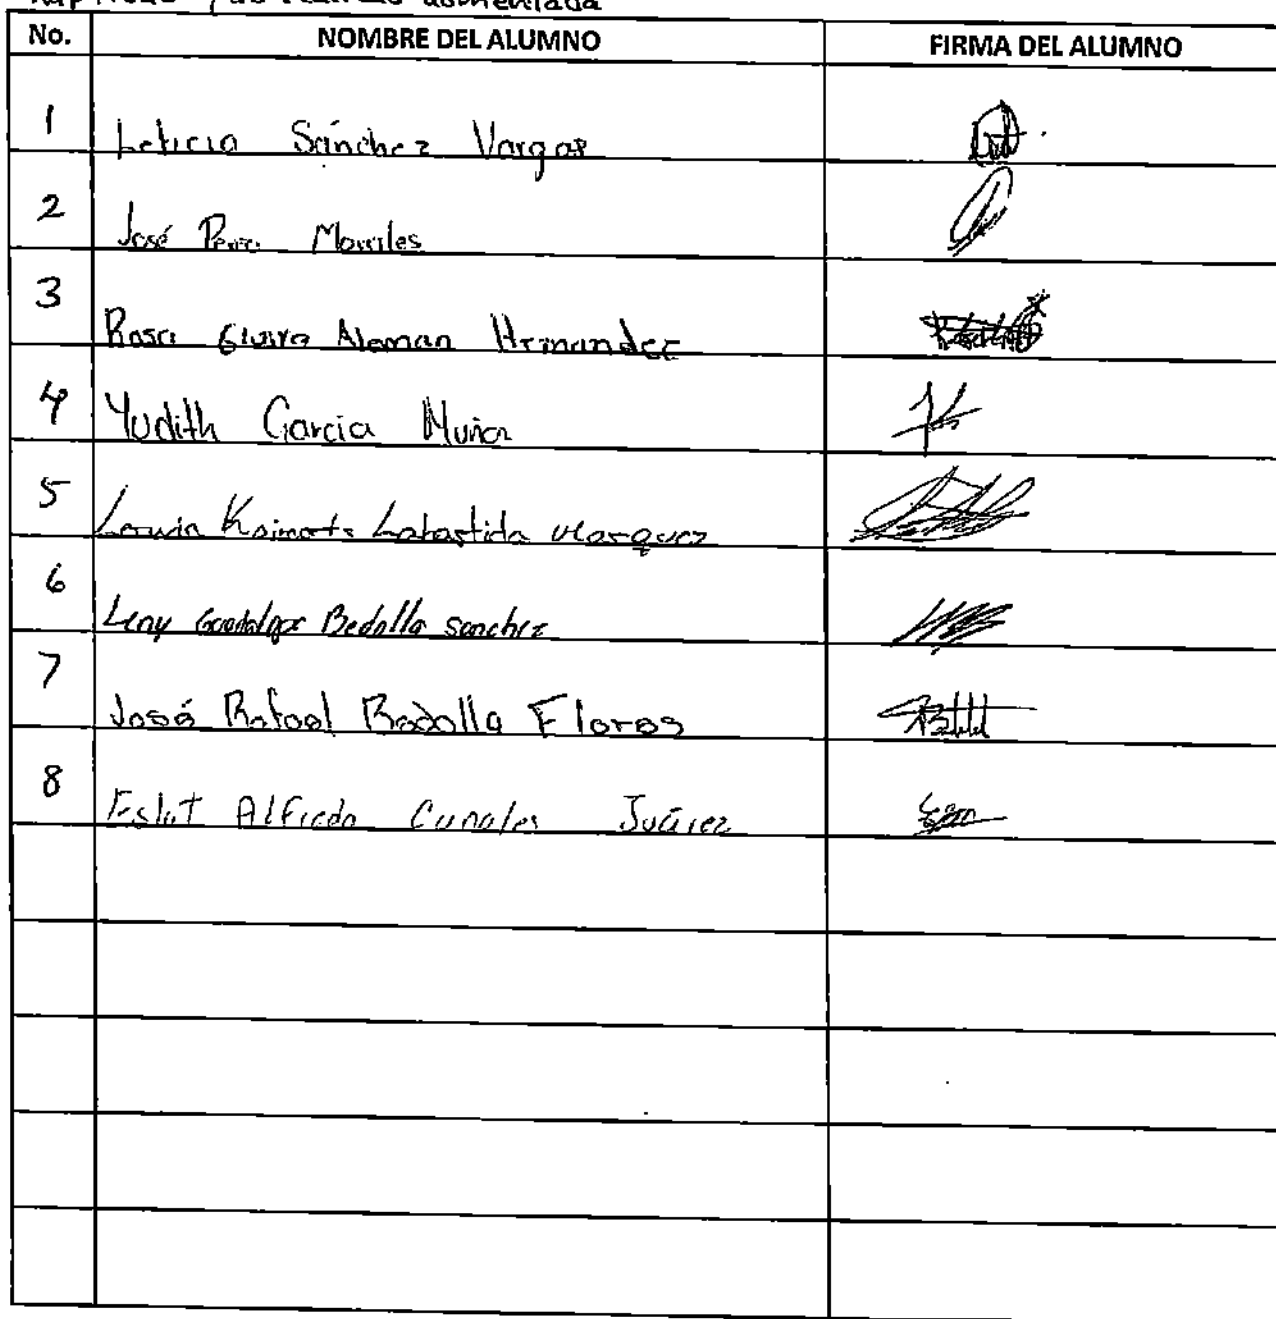 aumentada
No. NOMBRE DEL ALUMNO FIRMA DEL ALUMNO
1 Leticia Sánchez Vargas
2 José Morales
3 Rosa Elvira Aleman Hernandez
4 Yudith Garcia Muñoz
5 Labastida Marquez
6 Leny Guadalupe Bedolla Sanchez
7 José Rafael Bedolla Flores
8 Alfredo Canales Juárez